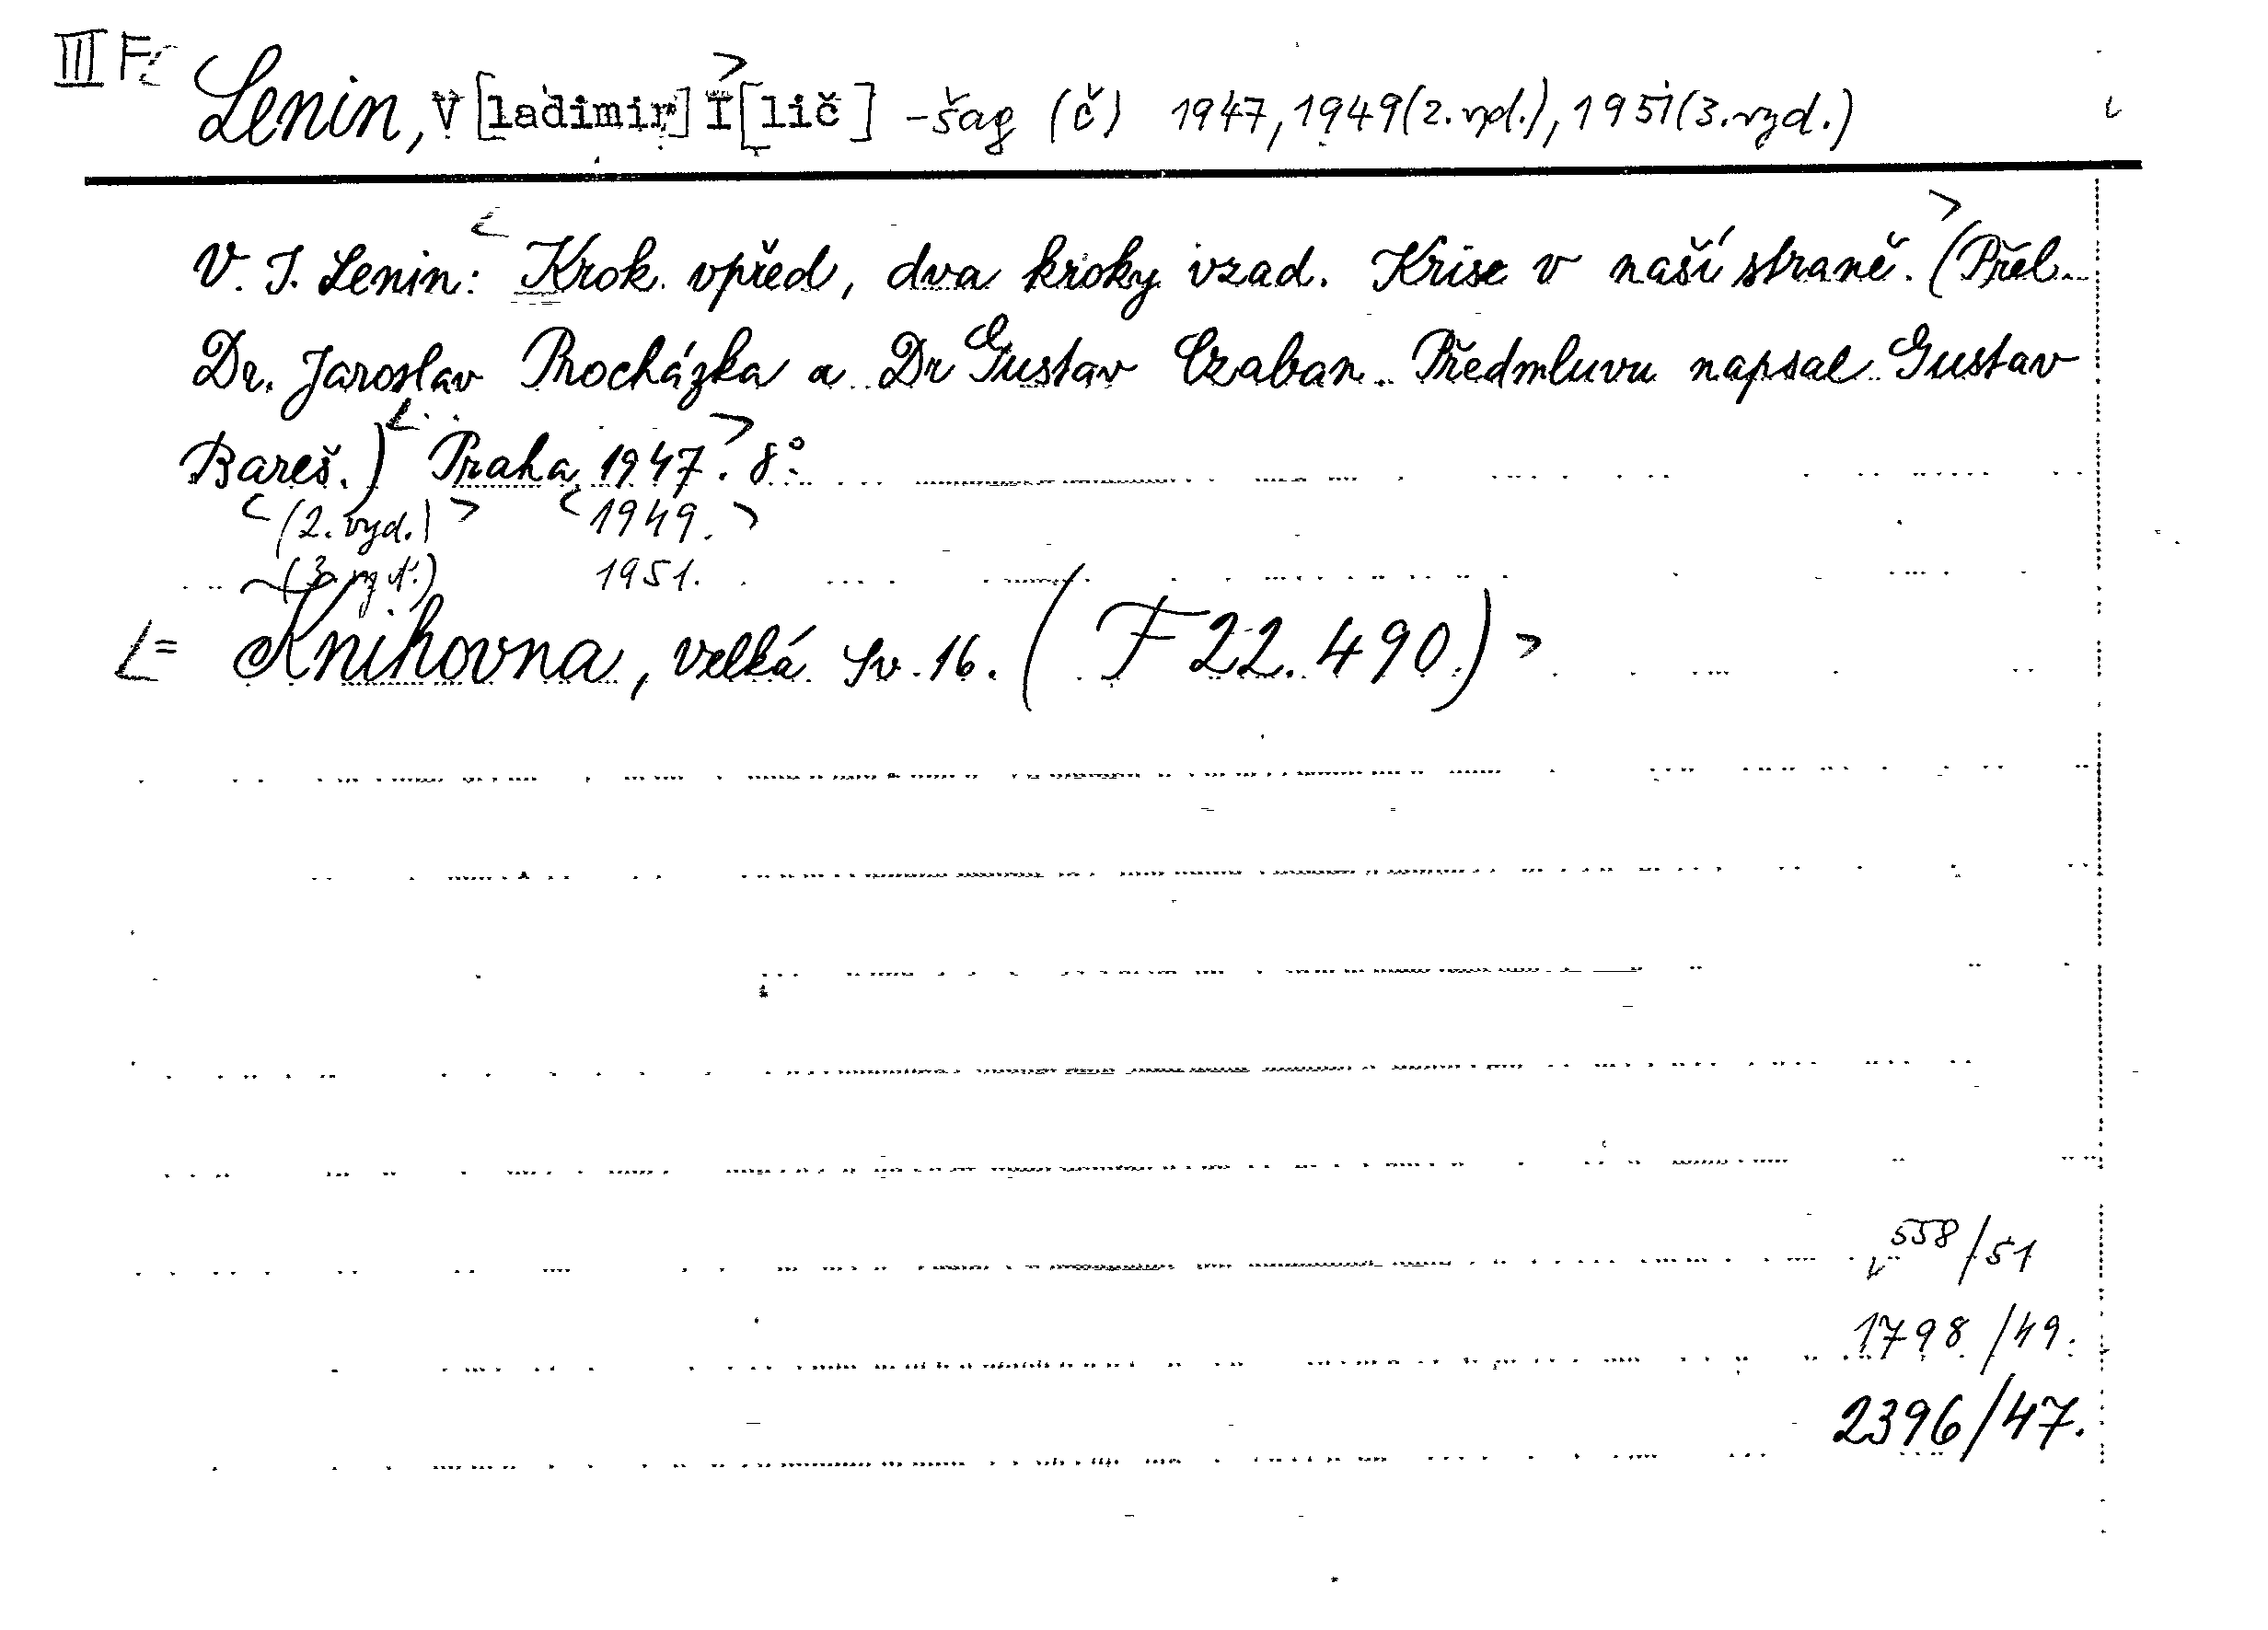 III F
Lenin, V[ladimir] I[lič] -šag (č) 1947, 1949 (2. vyd.), 1951 (3. vyd.)
V. I. Lenin: Krok vpřed, dva kroky vzad. Krise v naší straně. (Přel.
Dr. Jaroslav Procházka a Dr Gustav Czaban. Předmluvu napsal Gustav
Bareš.) Praha 1947. 8°.
(2. vyd.) 1949.
(3. vyd.) 1951.
= Knihovna, velká Sv. 16. (F 22.490.)
558/51
1798/49.
2396/47.